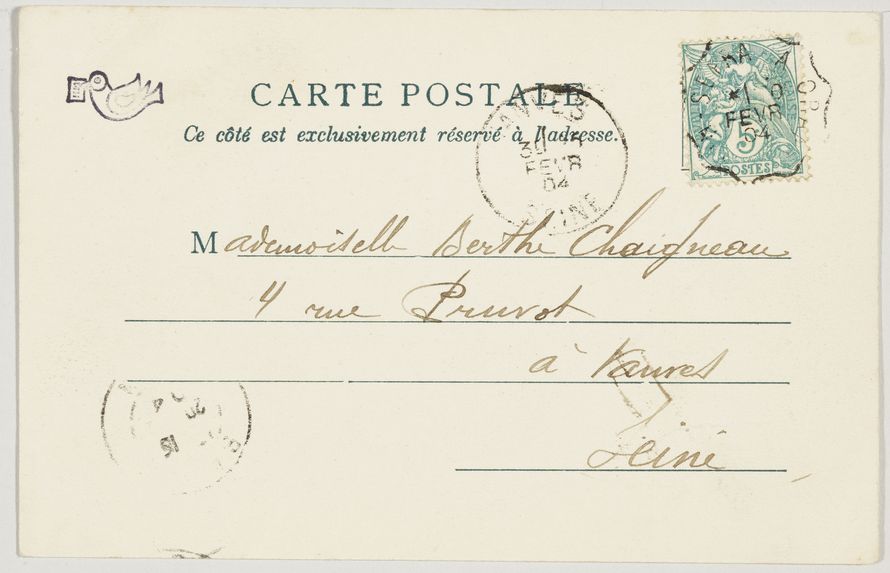 CARTE POSTALE
Ce côté est exclusivement réservé à l'adresse.
FEVR
04
5
POSTES
FEVR
04
SEINE
Mademoiselle Berthe Chaigneau
4 rue Pruvot
à Vanves
Seine